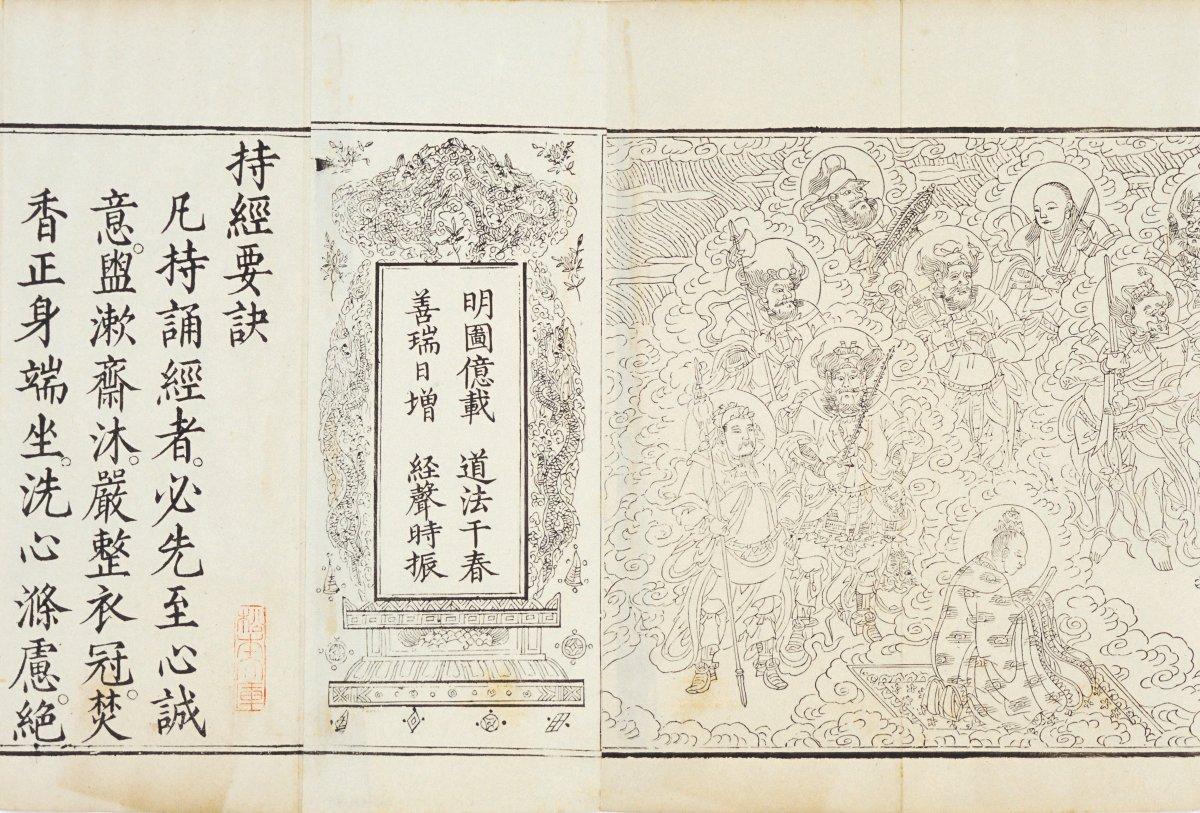 明圖億載　道法千春
善瑞日增　経聲時振
持經要訣
凡持誦經者。必先至心誠
意。盥漱齋沐。嚴整衣冠。焚
香正身端坐。洗心滌慮。絶